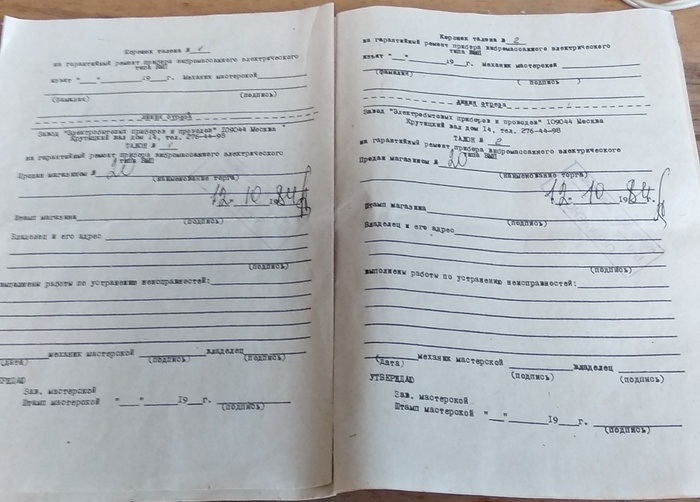 Корешок талона № 1
на гарантийный ремонт прибора вибромассажного электрического
типа ВМП
изъят "__"______19__г. Механик мастерской
(фамилия) (подпись)
линия отреза
Завод "Электробытовых приборов и проводов" 109044 Москва
Крутицкий вал дом 14, тел. 276-44-98
ТАЛОН № 1
на гарантийный ремонт прибора вибромассажного электрического
типа ВМП
Продан магазином № 20
(наименование торга)
12 - 10 1984
Штамп магазина
(подпись)
Владелец и его адрес
(подпись)
выполнены работы по устранению неисправностей:
(дата) механик мастерской (подпись) владелец (подпись)
Зав. мастерской
Штамп мастерской "__"______19__г.
(подпись)
Корешок талона № 2
на гарантийный ремонт прибора вибромассажного электрического
типа ВМП
изъят "__"______19__г. Механик мастерской
(фамилия) (подпись)
линия отреза
Завод "Электробытовых приборов и проводов" 109044 Москва
Крутицкий вал дом 14, тел. 276-44-98
ТАЛОН № 2
на гарантийный ремонт прибора вибромассажного электрического
типа ВМП
Продан магазином № 20
(наименование торга)
12 - 10 1984.
Штамп магазина
(подпись)
Владелец и его адрес
(подпись)
выполнены работы по устранению неисправностей:
(дата) механик мастерской (подпись) владелец (подпись)
УТВЕРЖДАЮ
Зав. мастерской
Штамп мастерской "__"______19__г.
(подпись)